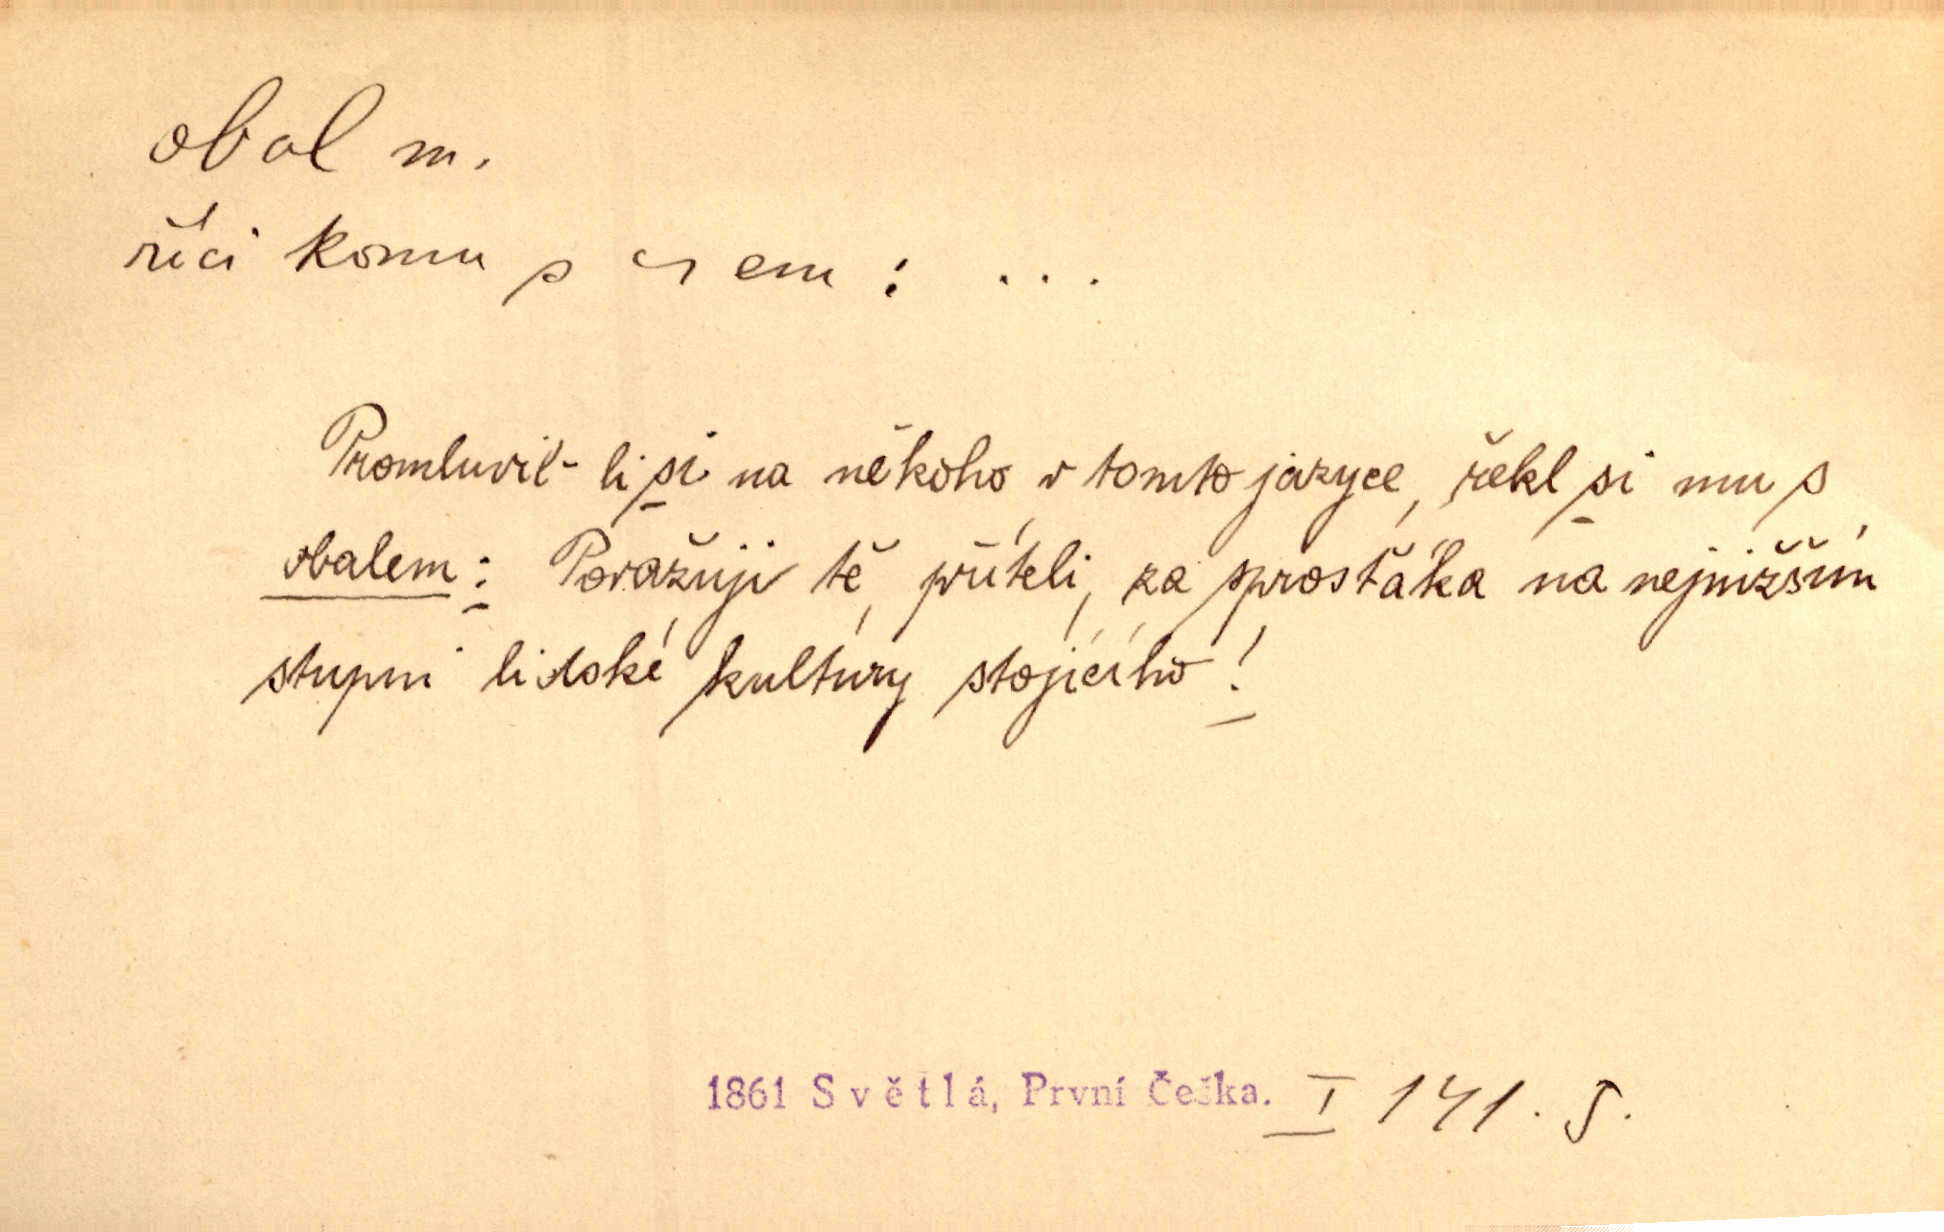 obal m.
říci komu s ~em: ...
Promluvil-li si na někoho v tomto jazyce, řekl si mu s
obalem: Považuji tě, příteli, za sprosťáka na nejnižším
stupni lidské kultúry stojícího!
1861 Světlá, První Češka. I 141. S.